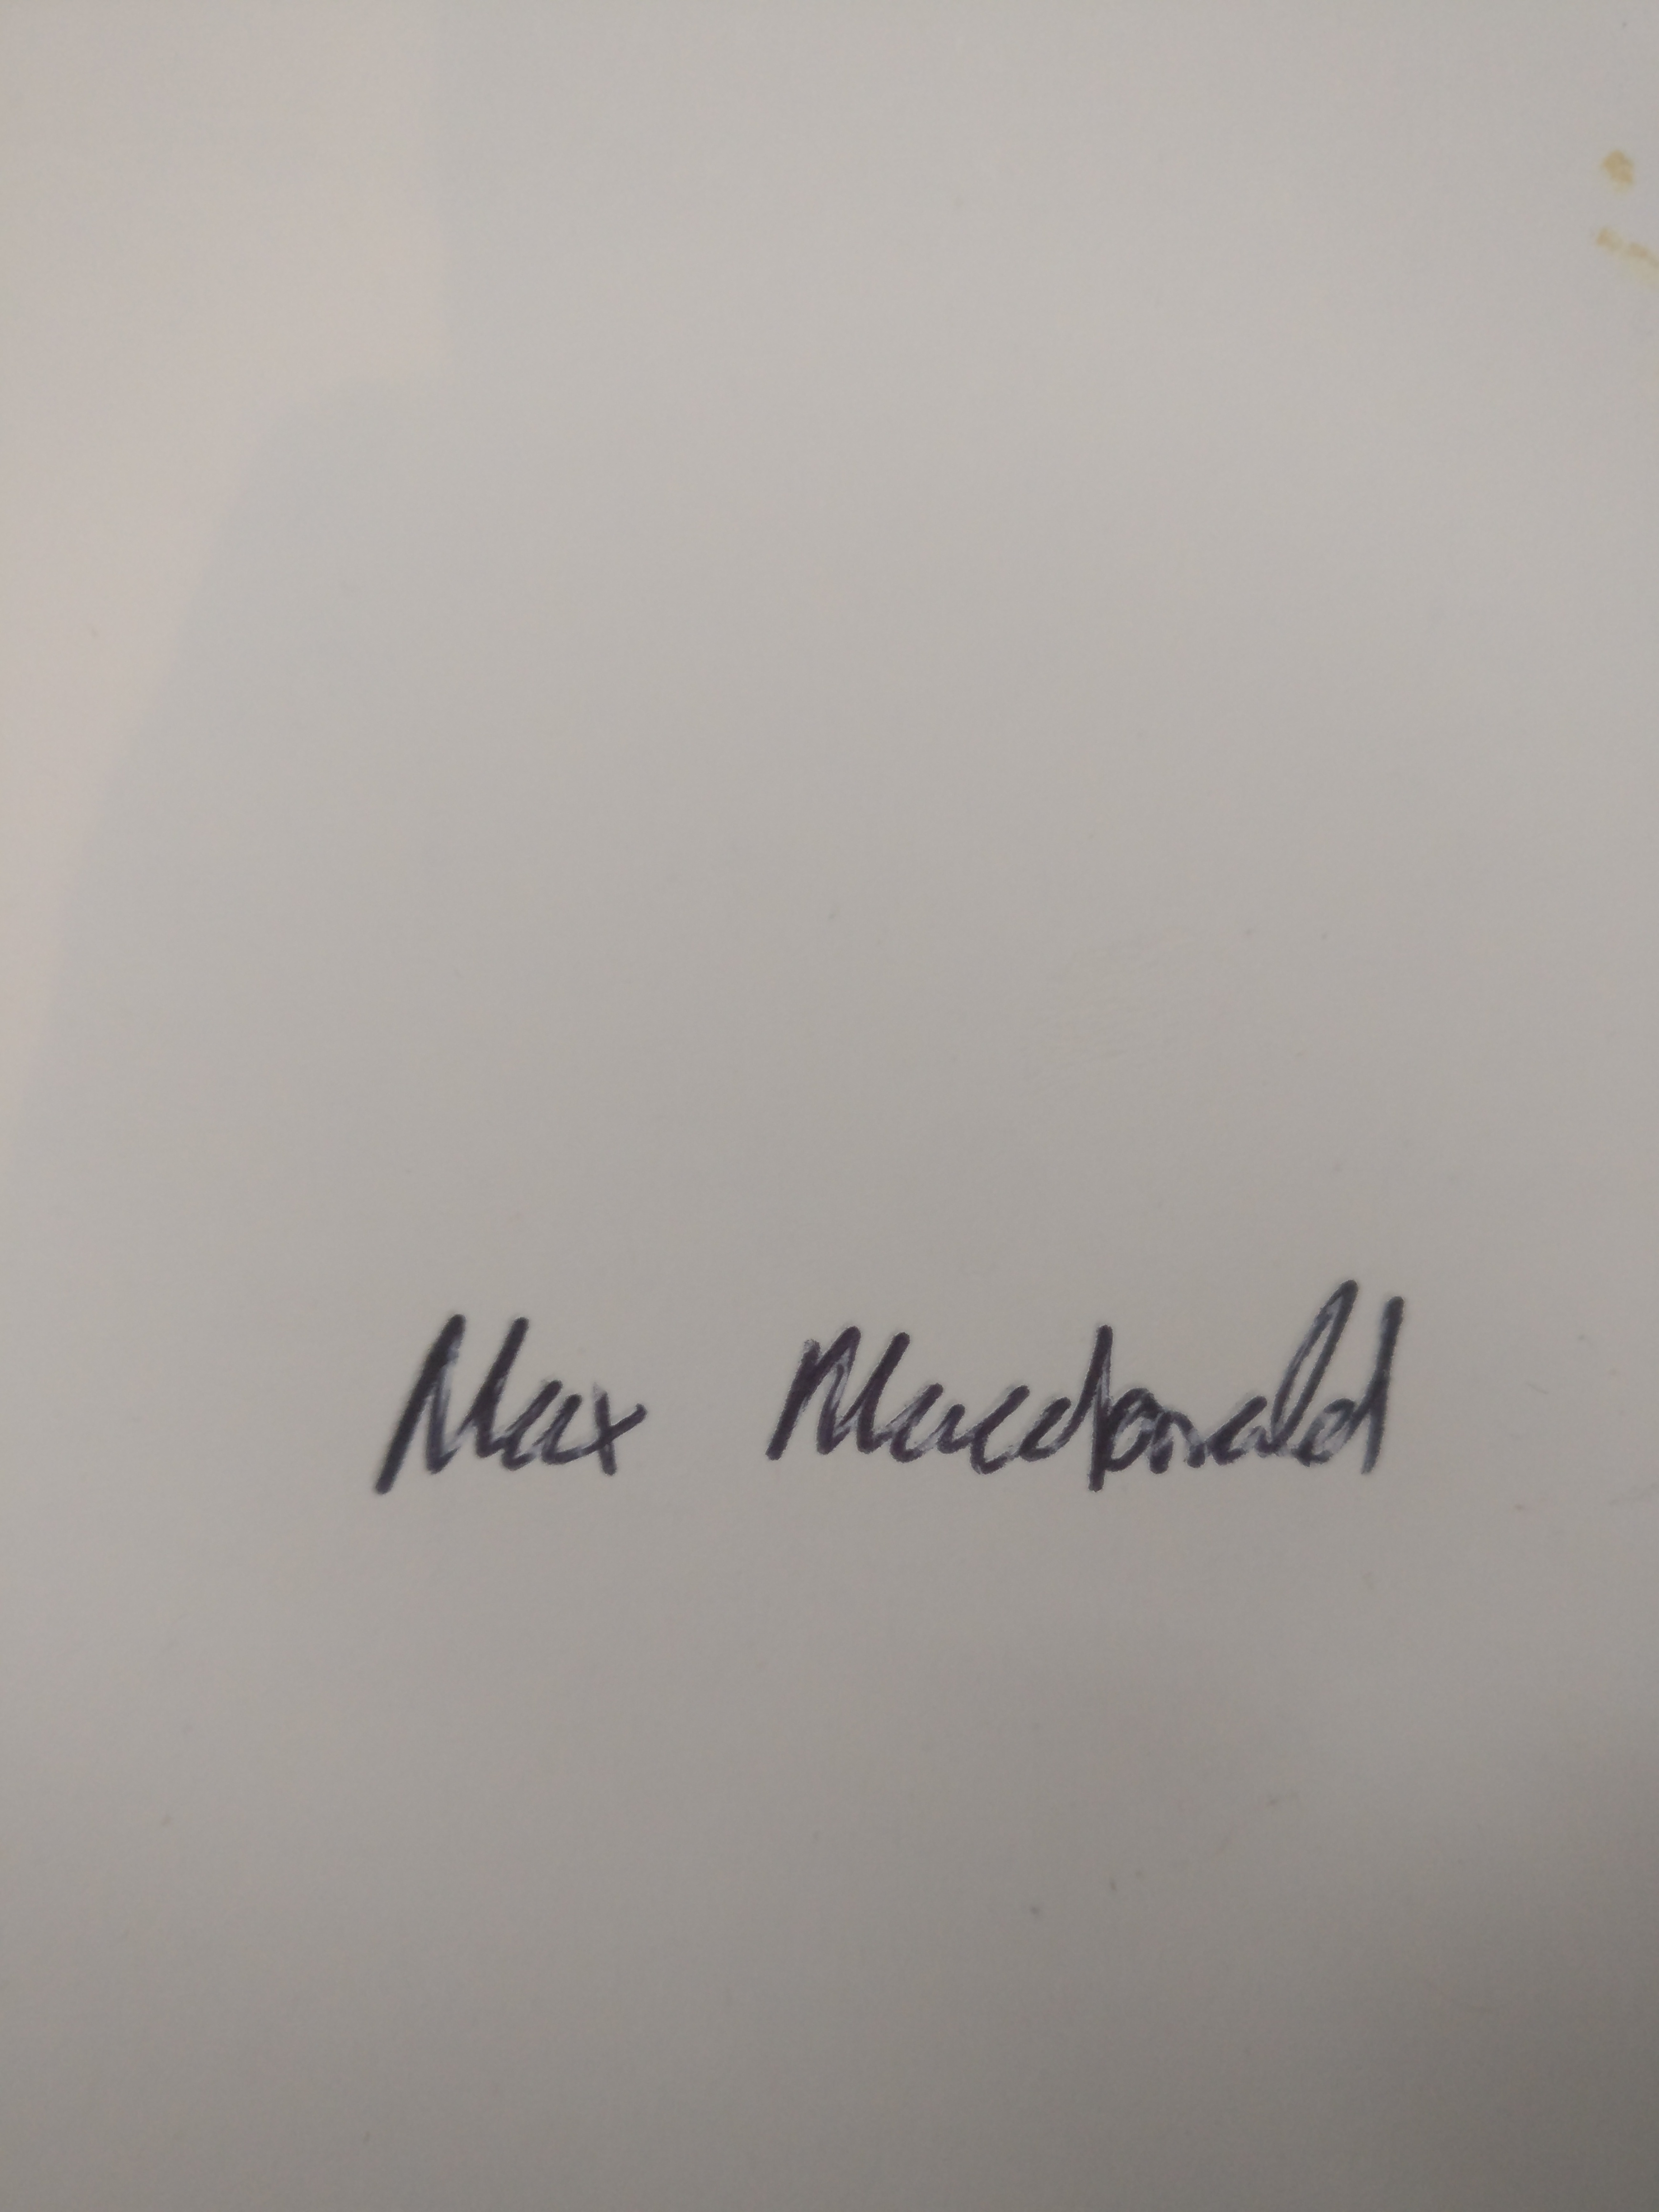 Max Macdonald